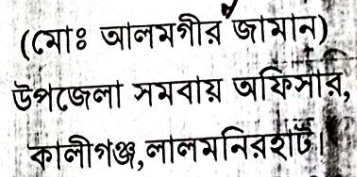 (মোঃ আলমগীর জামান)
উপজেলা সমবায় অফিসার,
কালীগঞ্জ,লালমনিরহাট।